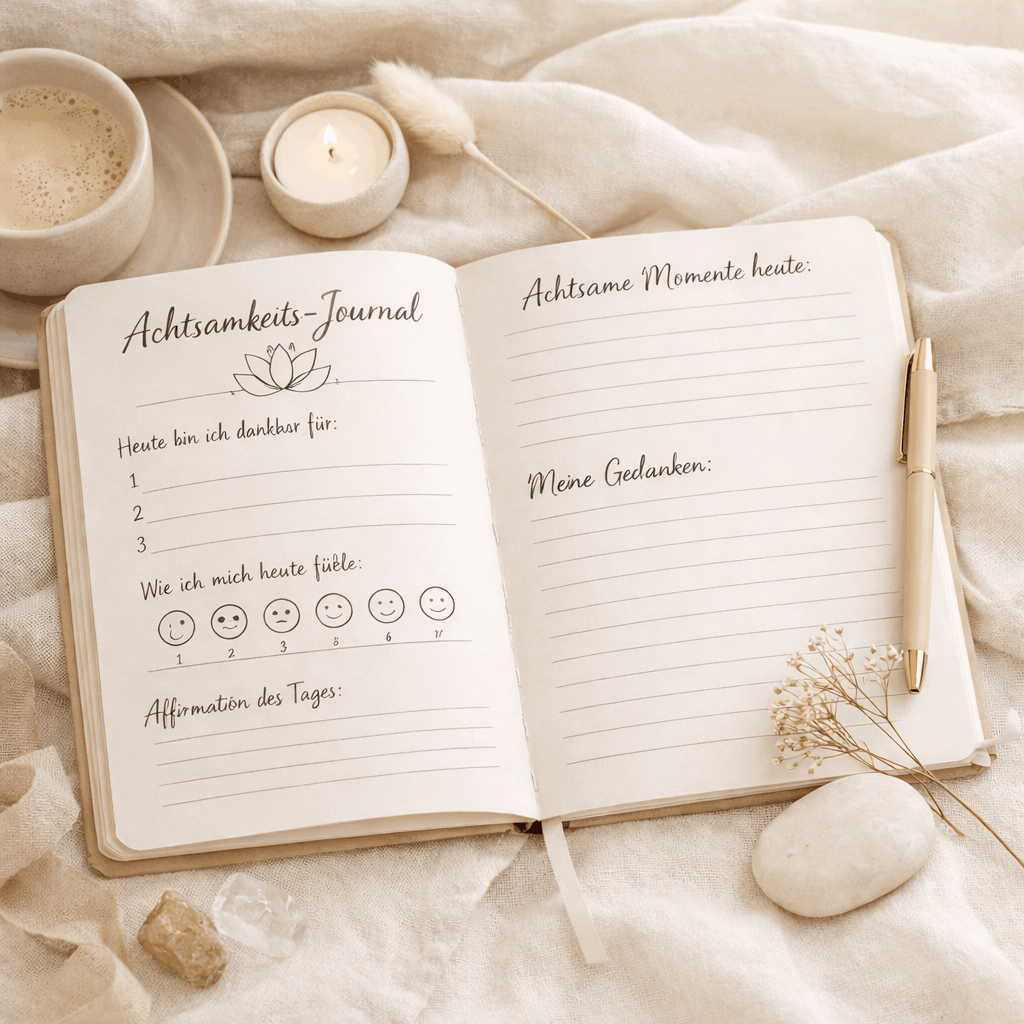 Achtsamkeits-Journal
Heute bin ich dankbar für:
1
2
3
Wie ich mich heute
1 2 3 6
Affirmation des Tages:
Achtsame Momente heute:
Meine Gedanken: